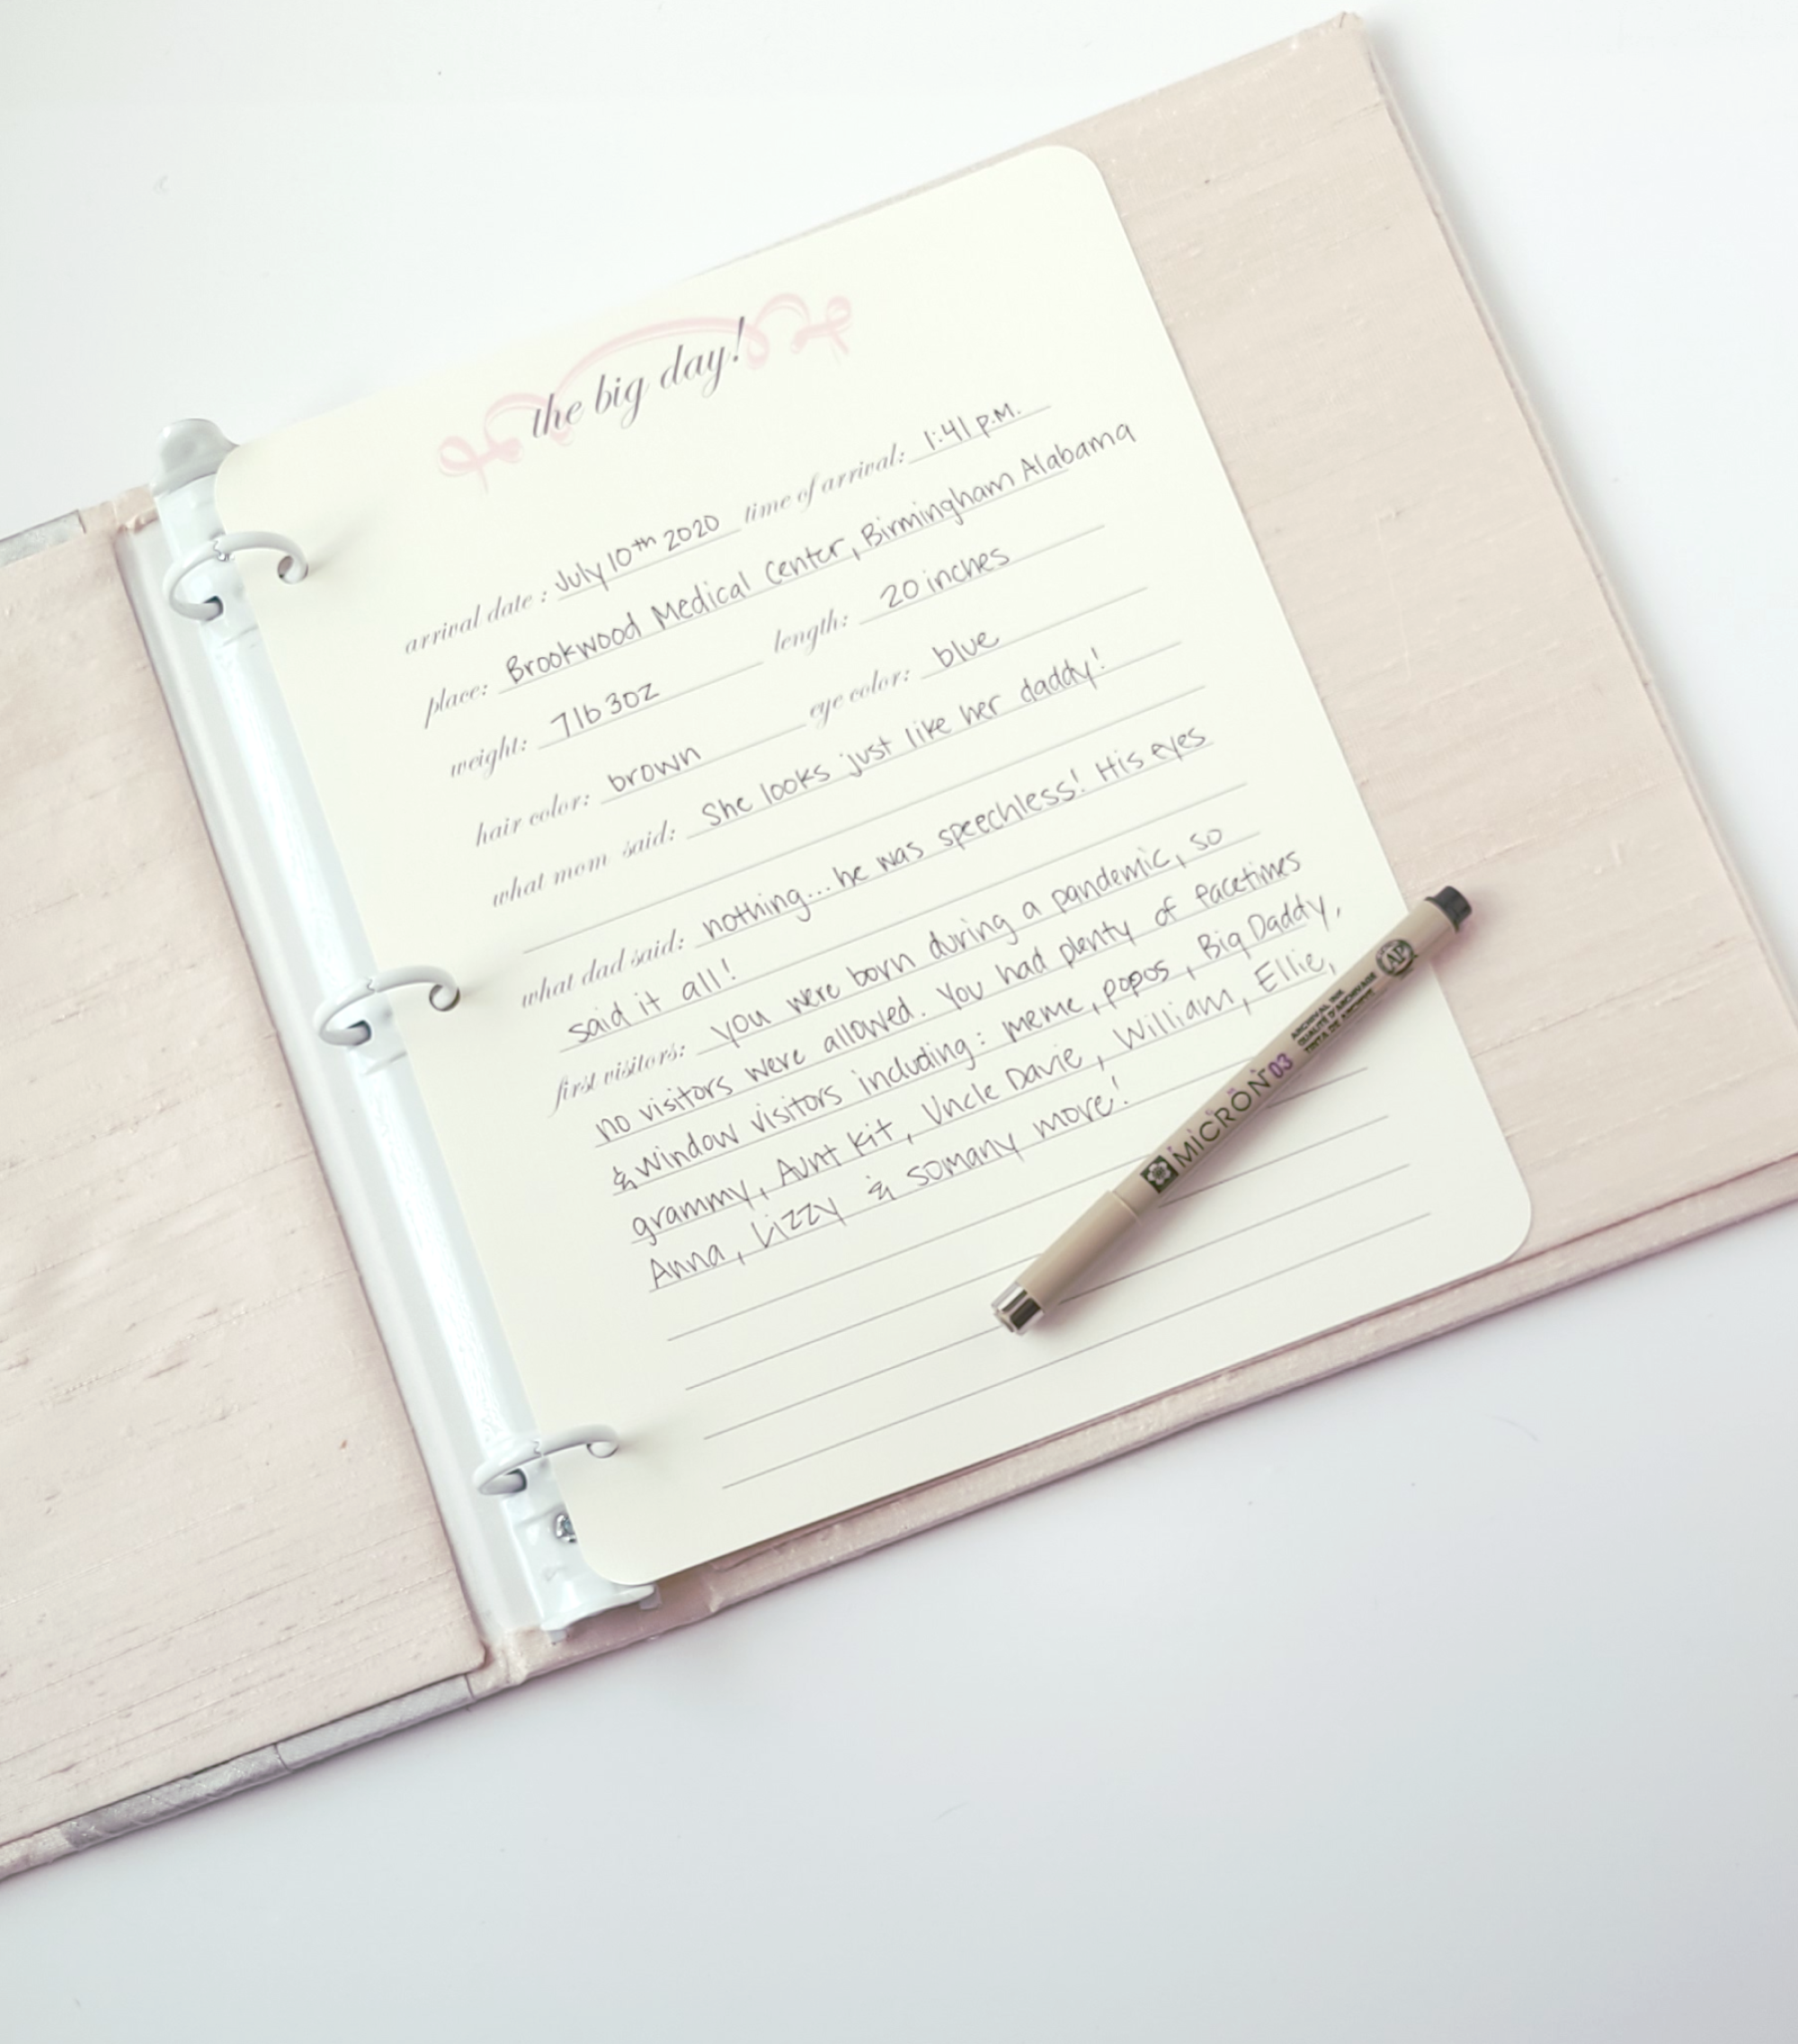 the big day!
arrival date: July 10th 2020 time of arrival: 1:41 p.M.
place: Brookwood Medical Center, Birmingham Alabama
weight: 7lb 3oz length: 20 inches
hair color: brown eye color: blue
what mom said: She looks just like her daddy!
what dad said: nothing... he was speechless! His eyes
said it all!
first visitors: you were born during a pandemic, so
no visitors were allowed. You had plenty of facetimes
& window visitors including: meme, popos, Big Daddy,
grammy, Aunt Kit, Uncle Davie, William, Ellie,
Anna, Lizzy & somany more!
MICRON 03
ARCHIVAL INK
QUALITÉ D'ARCHIVAGE
TINTA DE ARCHIVE
AP